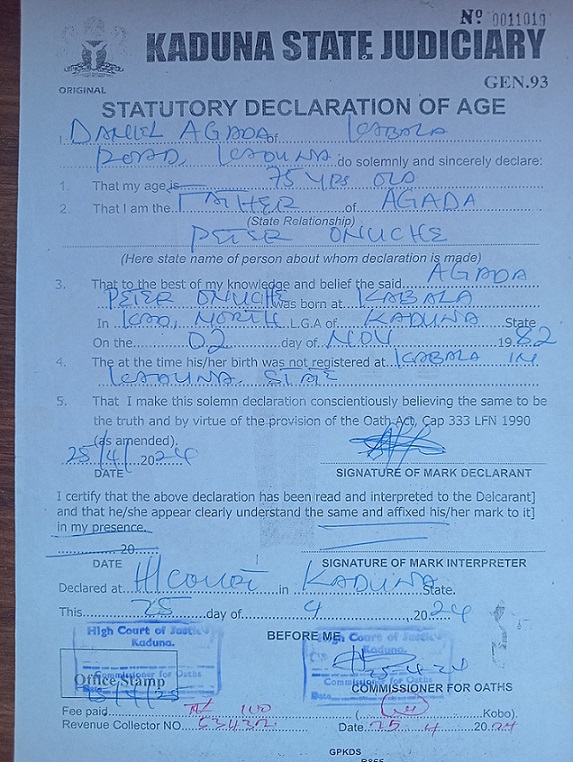 Nº 0011019
KADUNA STATE JUDICIARY
GEN.93
ORIGINAL
STATUTORY DECLARATION OF AGE
I, DANIEL AGADA of KABALA
ROAD, KADUNA do solemnly and sincerely declare:
1. That my age is 75 YRS OLD
2. That I am the FATHER of AGADA
(State Relationship)
PETER ONUCHE
(Here state name of person about whom declaration is made)
3. That to the best of my knowledge and belief the said AGADA
PETER ONUCHE was born at KABALA
In KAD, NORTH L.G.A of KADUNA State
On the 02 day of NOV 1982
4. The at the time his/her birth was not registered at KABALA IN
KADUNA STATE
5. That I make this solemn declaration conscientiously believing the same to be
the truth and by virtue of the provision of the Oath Act, Cap 333 LFN 1990
(as amended).
25/4/2024
DATE SIGNATURE OF MARK DECLARANT
I certify that the above declaration has been read and interpreted to the Delcarant]
and that he/she appear clearly understand the same and affixed his/her mark to it]
in my presence.
20
DATE SIGNATURE OF MARK INTERPRETER
Declared at H/COURT in KADUNA State.
This 25 day of 4 2024
BEFORE ME,
High Court of Justice
Kaduna.
Commissioner for Oaths
Office Stamp
High Court of Justice
Kaduna.
25-4-24
Commissioner for Oaths
COMMISSIONER FOR OATHS
Fee paid ₦ 100 ( Kobo).
Revenue Collector NO. Date 25 4 2024
GPKDS